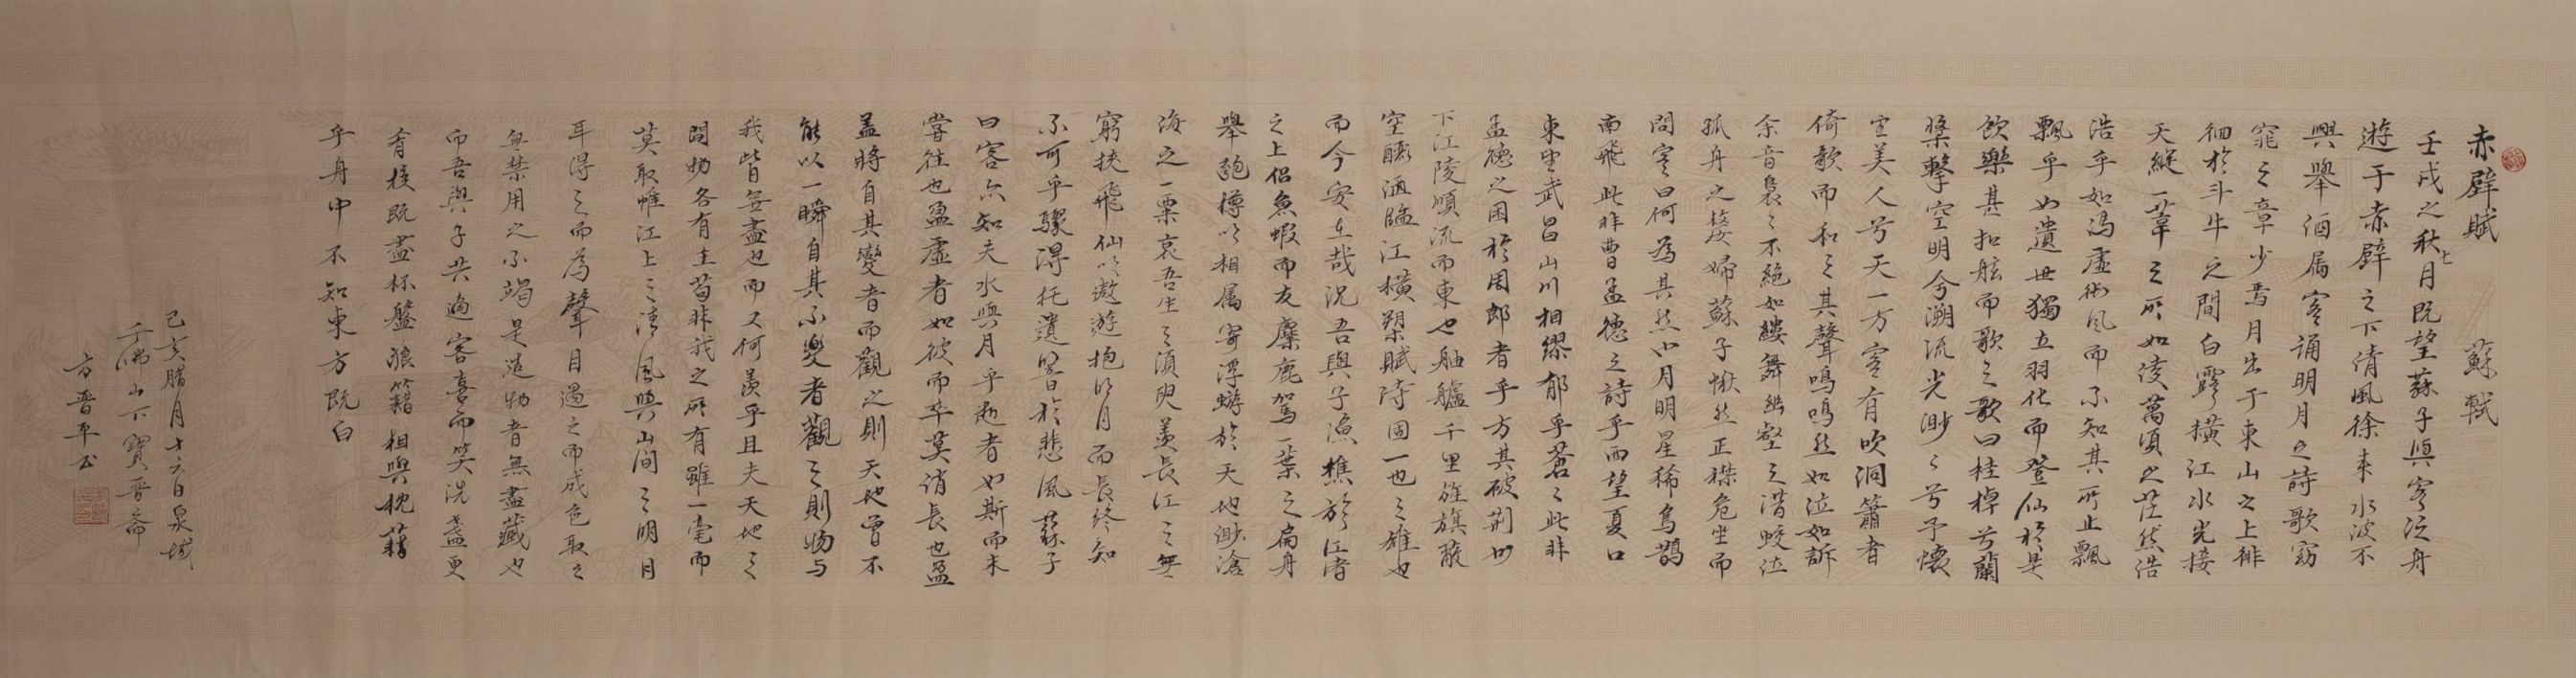 赤壁賦 蘇軾
壬戌之秋七月既望蘇子與客泛舟
遊于赤壁之下清風徐来水波不
興舉酒属客誦明月之詩歌窈
窕之章少焉月出于東山之上徘
徊於斗牛之間白露橫江水光接
天縱一葦之所如凌萬頃之茫然浩
浩乎如馮虛御風而不知其所止飄
飄乎如遺世獨立羽化而登仙於是
飲樂甚扣舷而歌之歌曰桂棹兮蘭
槳擊空明兮溯流光渺〻兮予懷
望美人兮天一方客有吹洞簫者
倚歌而和之其聲嗚嗚然如泣如訴
余音裊〻不絕如縷舞幽壑之潛蛟泣
孤舟之嫠婦蘇子愀然正襟危坐而
問客曰何為其然也月明星稀烏鵲
南飛此非曹孟德之詩乎西望夏口
東望武昌山川相繆郁乎蒼〻此非
孟德之困於周郎者乎方其破荆州
下江陵順流而東也舳艫千里旌旗蔽
空釃酒臨江橫槊賦詩固一世之雄也
而今安在哉況吾與子漁樵於江渚
之上侶魚蝦而友麋鹿駕一葉之扁舟
舉匏樽以相属寄蜉蝣於天地渺滄
海之一粟哀吾生之須臾羨長江之無
窮挾飛仙以遨遊抱明月而長終知
不可乎驟得托遺響於悲風蘇子
曰客亦知夫水與月乎逝者如斯而未
嘗往也盈虛者如彼而卒莫消長也盈
蓋將自其變者而觀之則天地曾不
能以一瞬自其不變者觀之則物与
我皆無盡也而又何羨乎且夫天地之
間物各有主苟非我之所有雖一毫而
莫取惟江上之清風與山間之明月
耳得之而為聲目遇之而成色取之
無禁用之不竭是造物者無盡藏也
而吾與子共適客喜而笑洗盞更
肴核既盡杯盤狼籍相與枕藉
乎舟中不知東方既白
己亥臘月十六日泉城
千佛山下寶晋齋
方晋平书